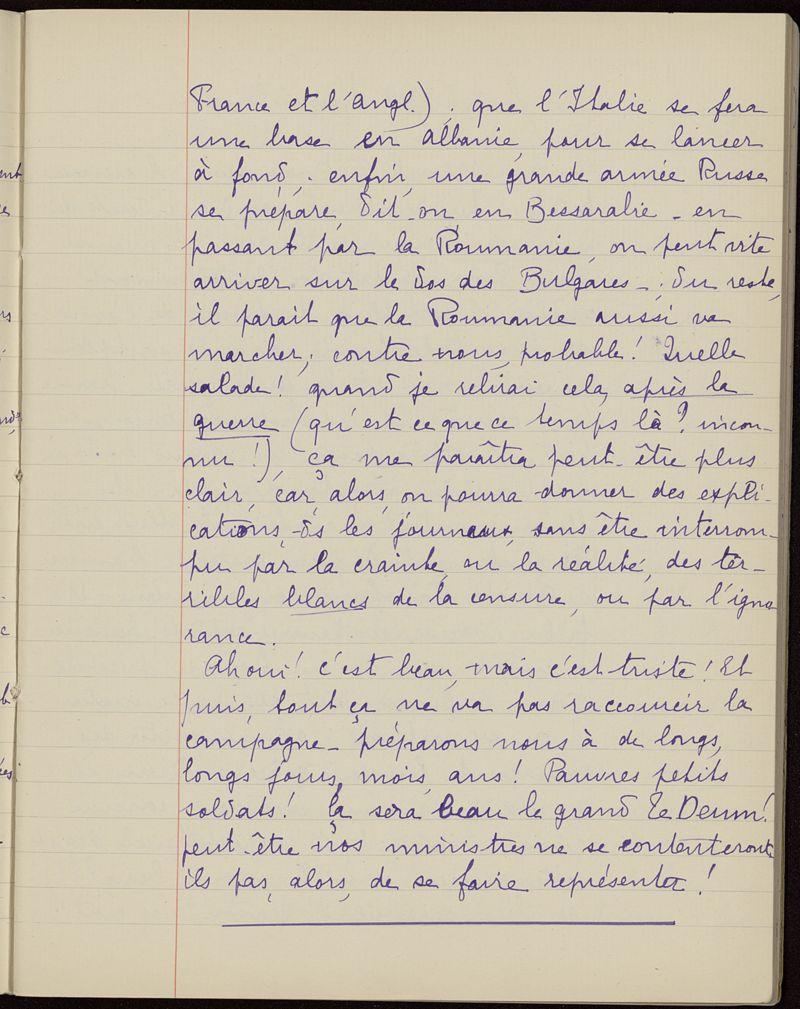 France et l'Angl.), que l'Italie se fera
une base en Albanie, pour se lancer
à fond, . enfin, une grande armée Russe
se prépare, dit-on, en Bessarabie - en
passant par la Roumanie, on peut vite
arriver sur le dos des Bulgares - ; du reste,
il parait que la Roumanie aussi va
marcher ; contre nous, probable ! Quelle
salade ! quand je relirai cela, après la
guerre (qu'est ce que ce temps là ? incon-
nu !), ça me paraîtra peut-être plus
clair, car, alors, on pourra donner des expli-
cations, ds les journaux, sans être interrom-
pu par la crainte, ou la réalité, des ter-
ribles blancs de la censure, ou par l'igno
rance.
Ah oui ! c'est beau, mais c'est triste ! Et
puis, tout ça ne va pas raccourcir la
campagne - préparons nous à de longs,
longs jours, mois, ans ! Pauvres petits
soldats ! Ça sera beau le grand Te Deum !
peut-être nos ministres ne se contenteront
ils pas, alors, de se faire représenter !
ent